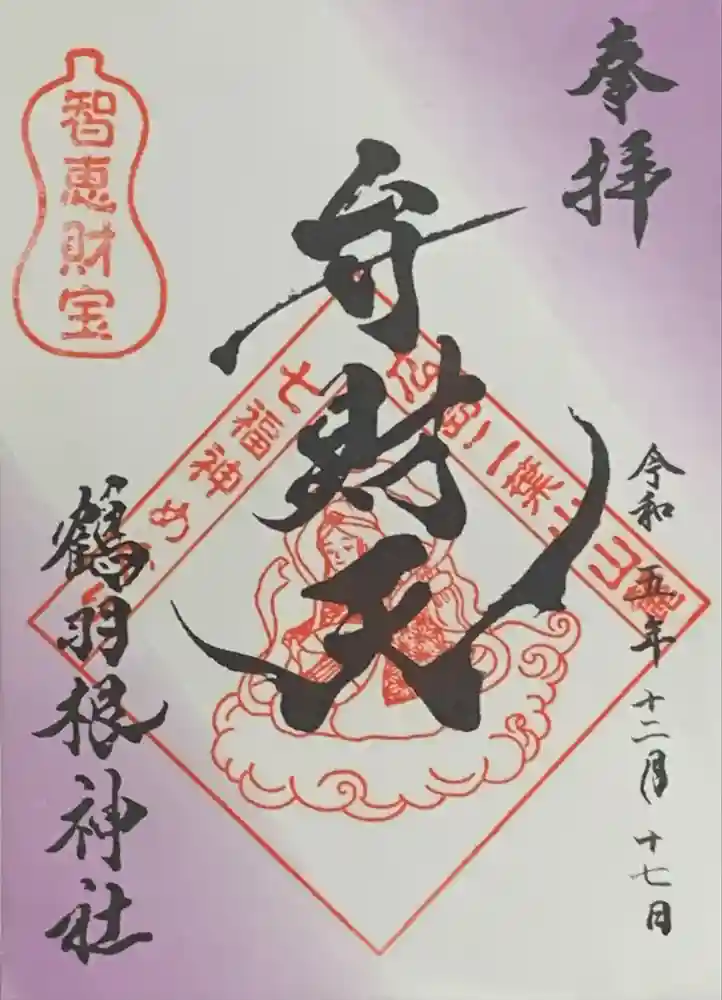 奉拝
令和五年十二月十七日
弁財天
七福神め
智恵財宝
鶴羽根神社